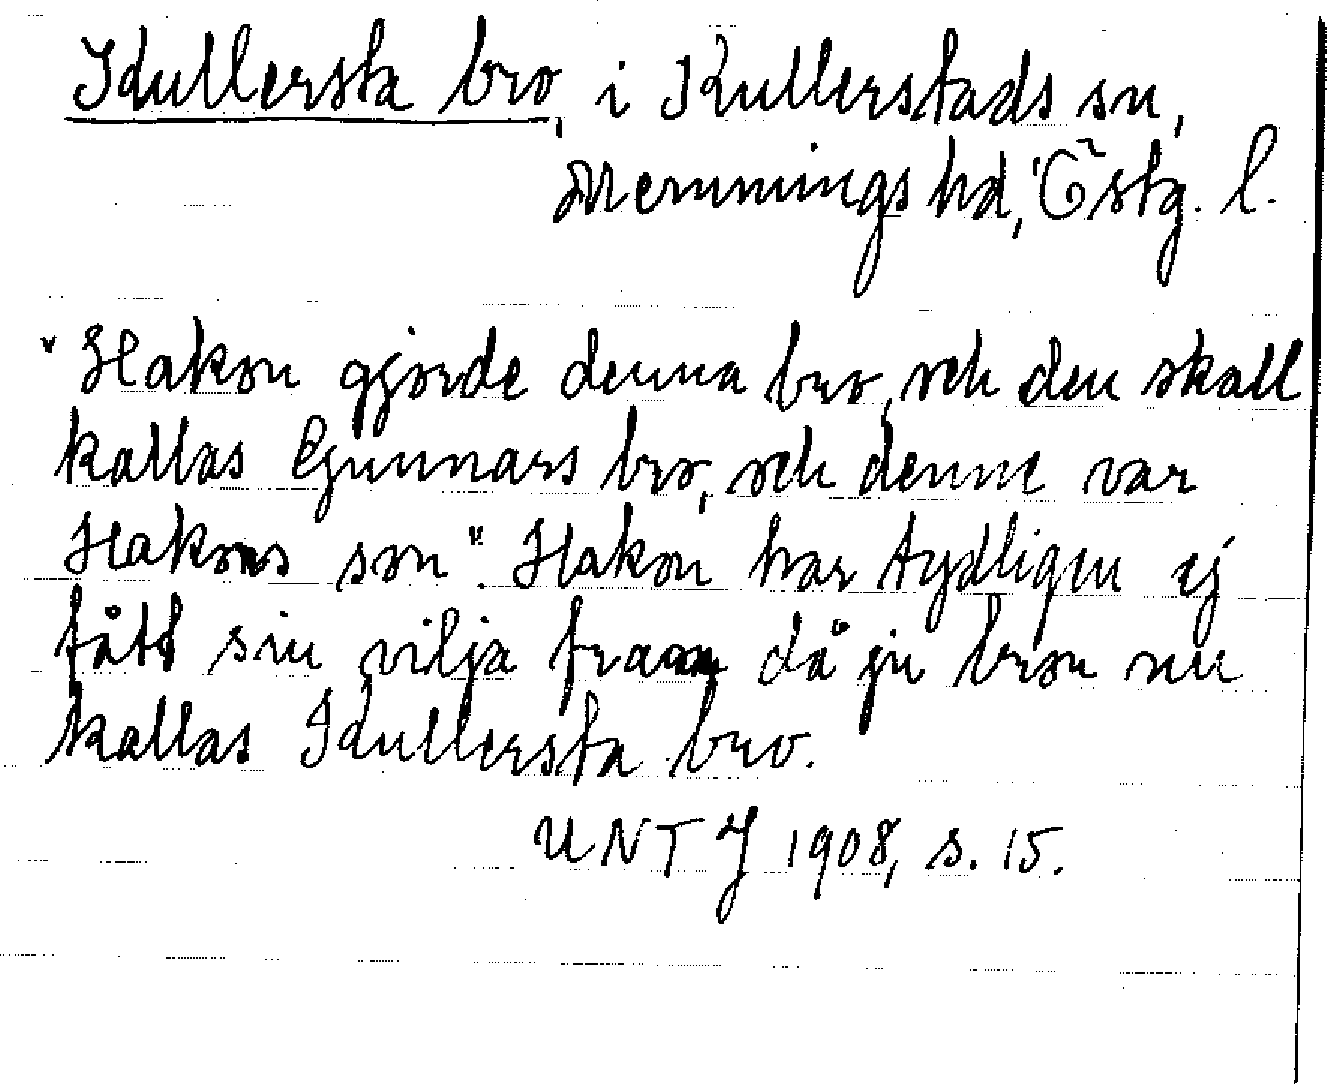 Kullersta bro, i Kullerstads sn,
Memmings hd, Östg. l.
"Hakon gjorde denna bro, och den skall
kallas Gunnars bro, och denne var
Hakons son". Hakon har tydligen ej
fått sin vilja fram då ju bron nu
kallas Kullersta bro.
UNT J 1908, s. 15.